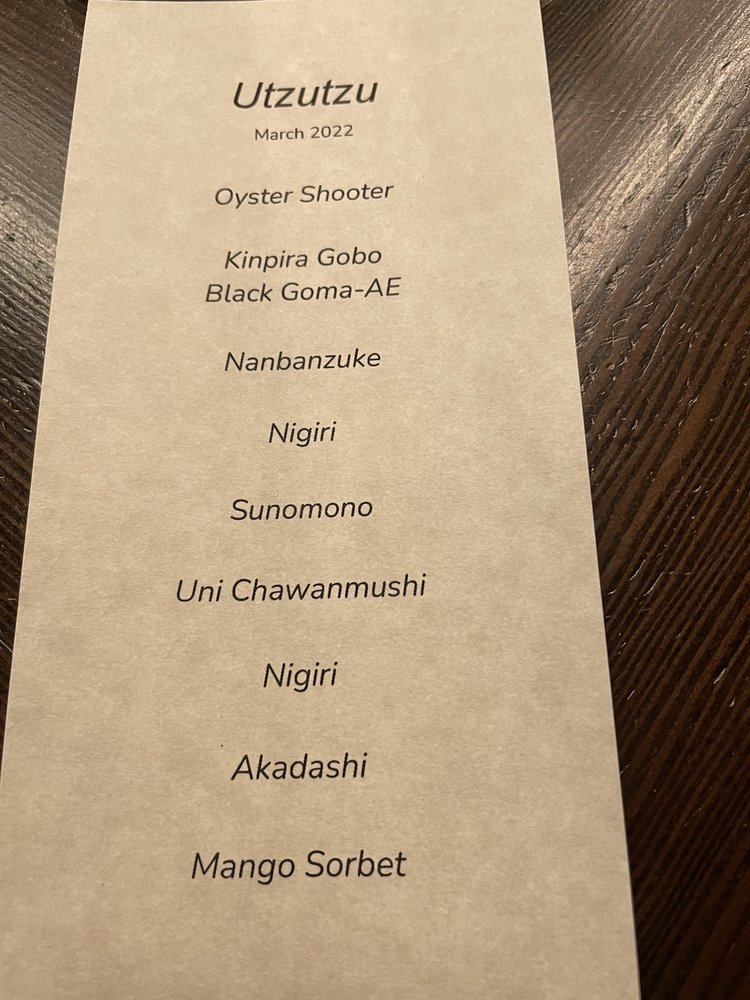 Utzutzu
March 2022
Oyster Shooter
Kinpira Gobo
Black Goma-AE
Nanbanzuke
Nigiri
Sunomono
Uni Chawanmushi
Nigiri
Akadashi
Mango Sorbet